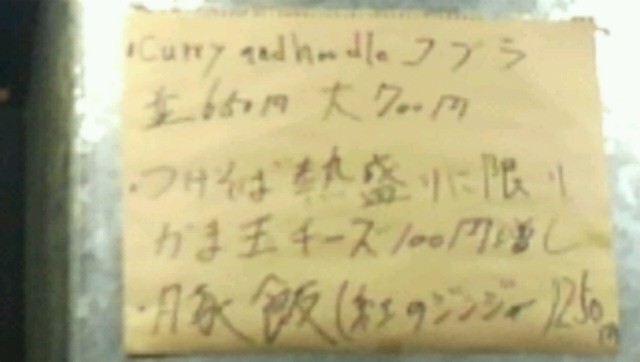 ・Curry and noodle コブラ
並650円 大700円
・つけそば 熱盛りに限り
かま玉チーズ100円増し
・豚飯(紅のジンジャー)250円